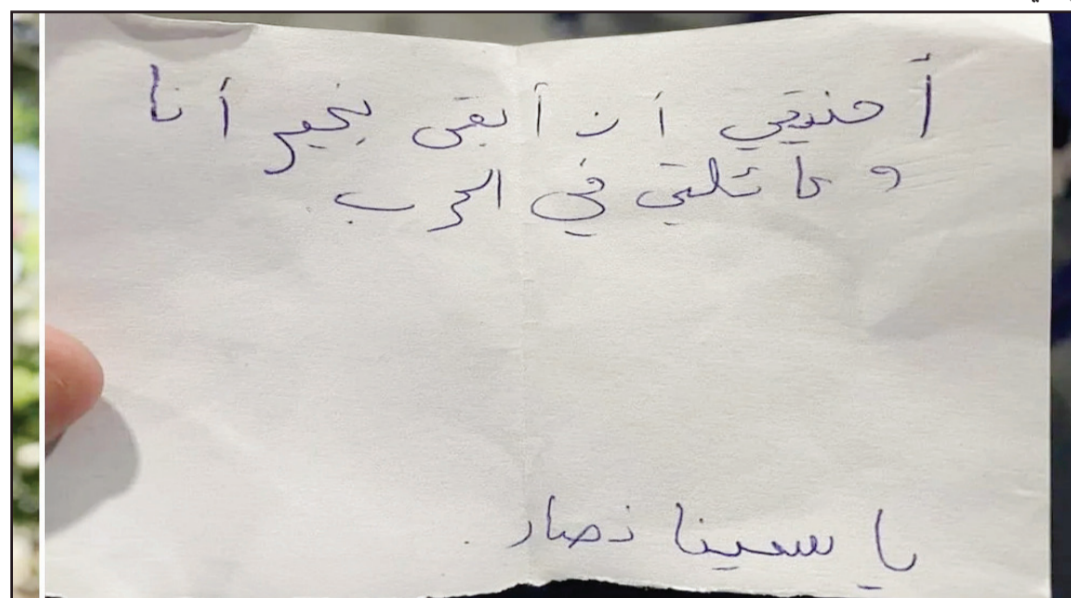 أمنيتي أن أبقى بخير أنا
و عائلتي في الحرب.
ياسمينا نصار.